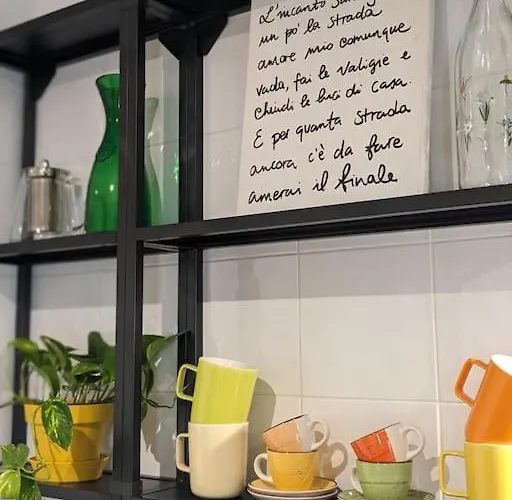 L'incanto
un po' la strada
amore mio comunque
vada, fai le valigie e
chiudi le luci di casa.
E per quanta strada
ancora c'è da fare
amerai il finale